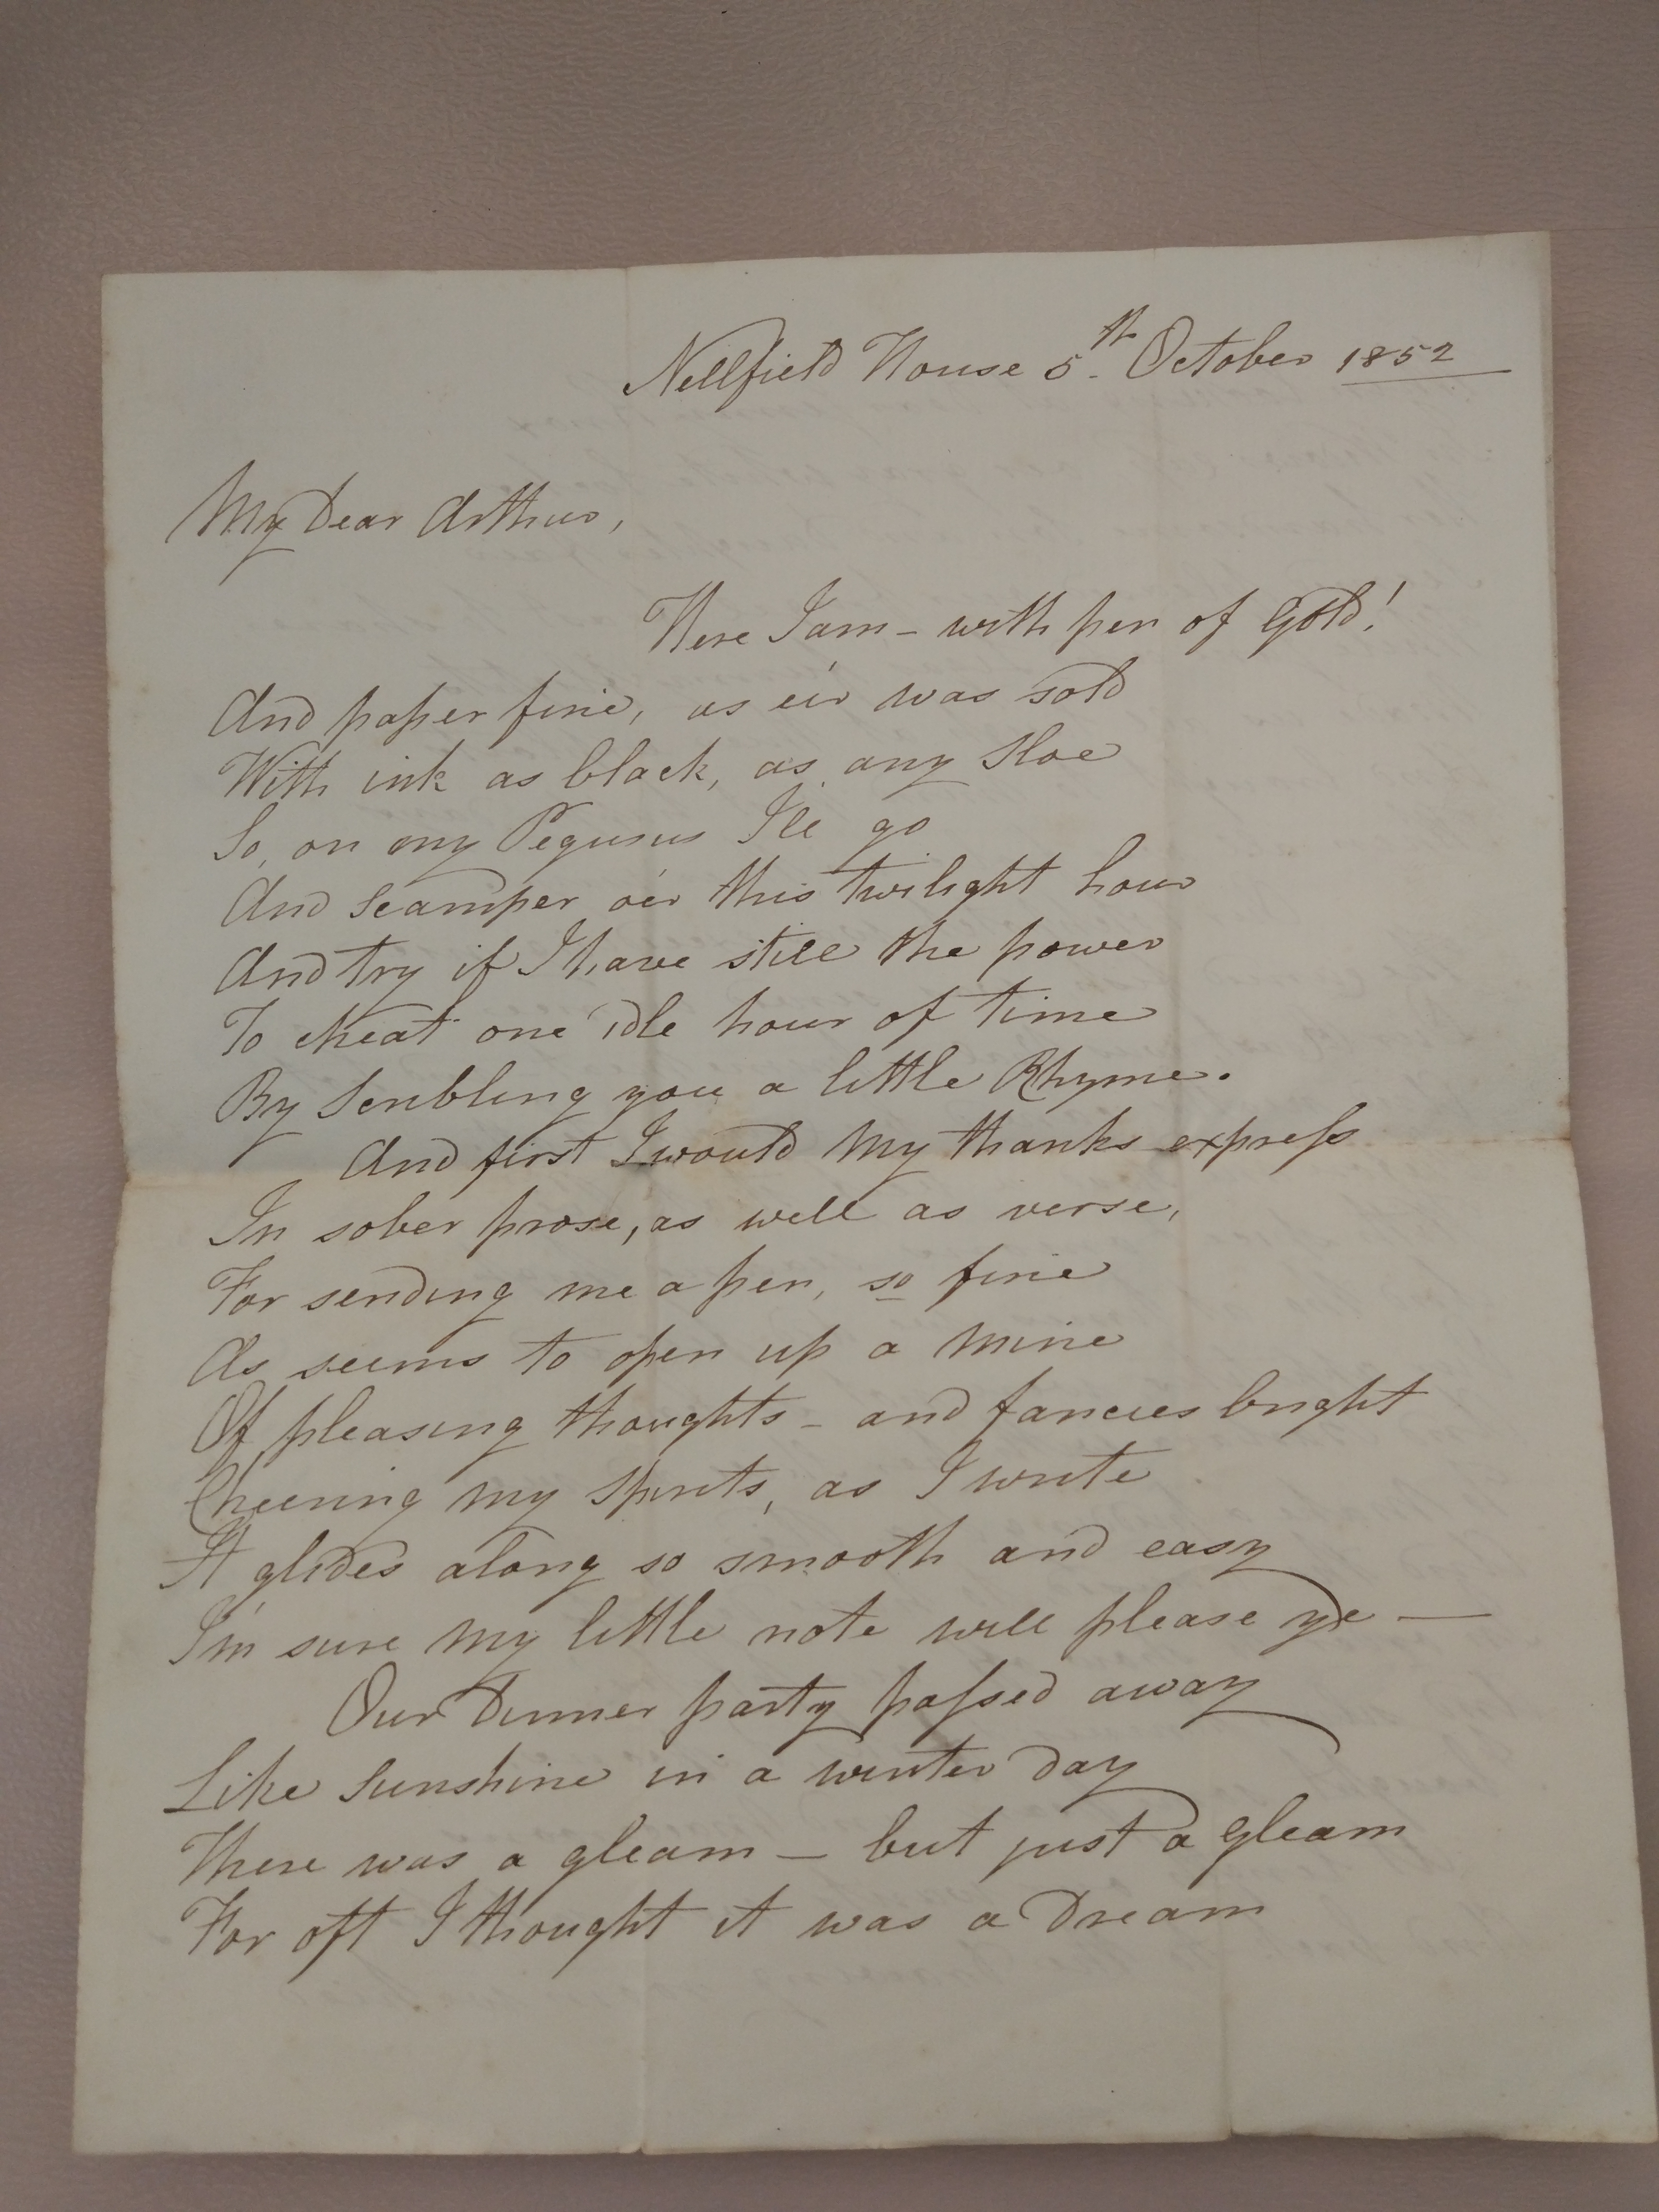 Nellfield House 5th October 1852
My Dear Arthur,
Here I am – with pen of Gold!
And paper fine, as e'er was sold
With ink as black, as any Sloe
So, on my Pegusus I'll go
And Scamper o'er this twilight hour
And try if I have still the power
To cheat one idle hour of time
By Scribling you a little Rhyme.
And first I would My thanks express
In sober prose, as well as verse,
For sending me a pen, so fine
As seems to open up a Mine
Of pleasing thoughts – and fancies bright
Cheering my Spirits, as I write
It glides along so smooth and easy
I'm sure my little note will please ye —
Our Dinner party passed away
Like Sunshine in a winter day
There was a gleam – but just a gleam
For oft I thought it was a Dream